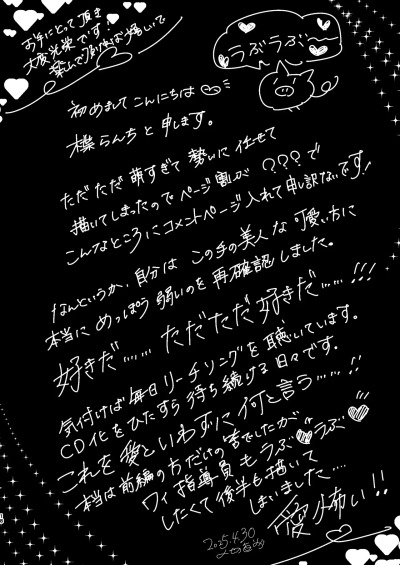 お手にとって頂き
大変光栄です!
楽しんで頂ければ幸いです
うぶうぶ
初めましてこんにちは
樸らんちと申します。
ただただ萌すぎて勢いに任せて
描いてしまったのでページ割が???で
こんなところにコメントページ入れて申し訳ないです!
なんというか、自分はこの手の美人な可愛い方に
本当にめっぽう弱いのを再確認しました。
好きだ……ただただ好きだ……!!!
気付けば毎日リーチソングを聴いています。
CD化をひたすら待ち続ける日々です。
これを愛といわずに何と言う……!!
本当は前編の方だけの筈でしたが
ワィ指導員もうぶうぶ
したくて後半も描いて
しまいました…
愛怖い!!
2025.4.30